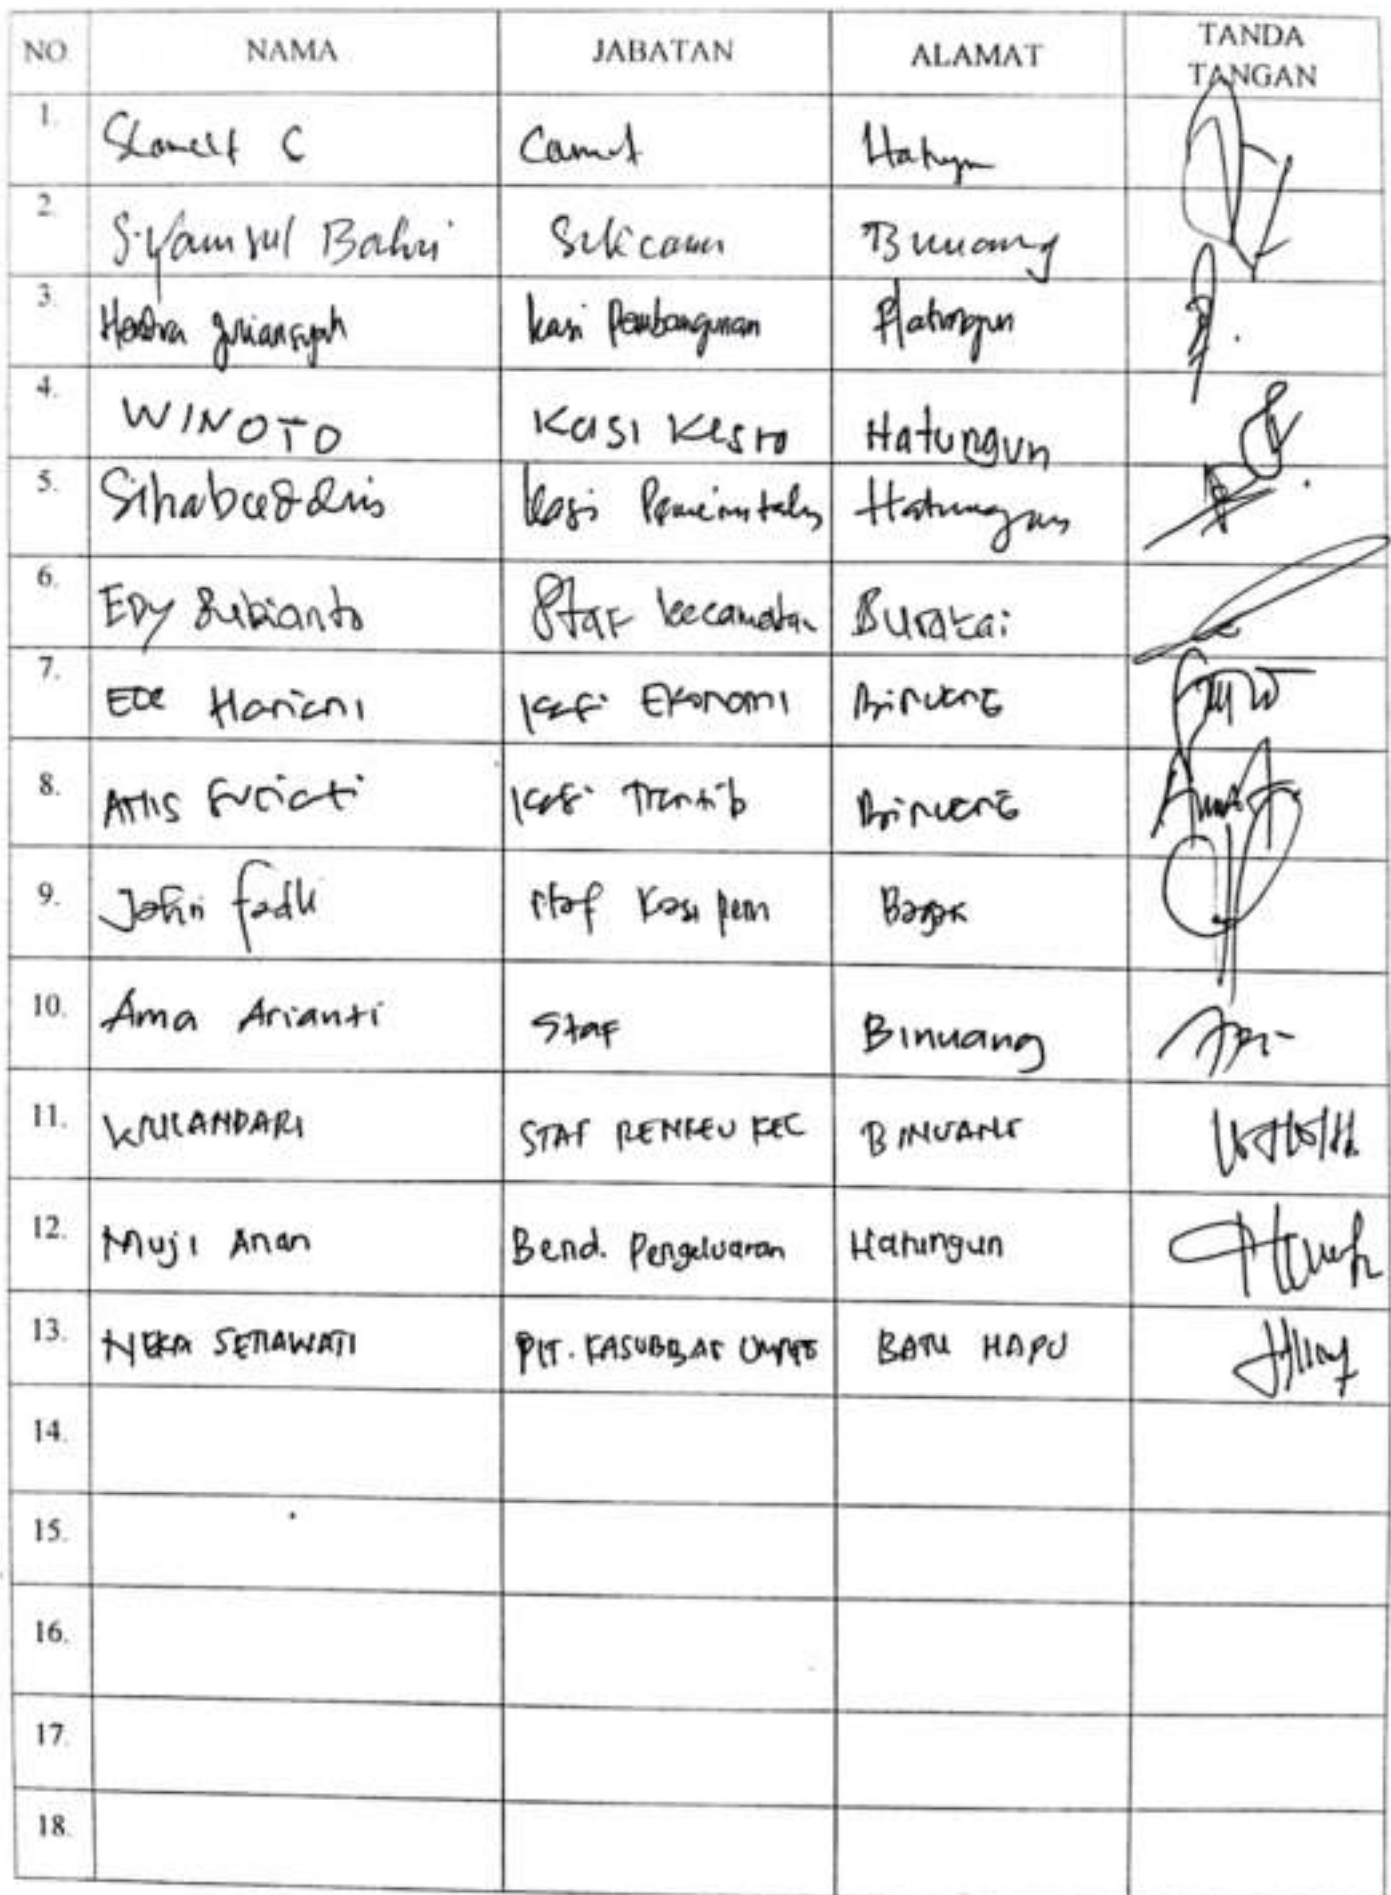 NO. NAMA JABATAN ALAMAT TANDA TANGAN
1. Slamet S Camat Hatungun
2. Syamsul Bahri Sekcam Binuang
3. Hendra Juriansyah kasi Pembangunan Hatungun
4. WINOTO KASI Kesra Hatungun
5. Sihabuddin kasi Pemerintahan Hatungun
6. EDY Subianto Staf kecamatan Burakai
7. Hariani Kasi Ekonomi Binuang
8. Kasi Trantib Binuang
9. Jahri fadli staf Kasi pem
10. Ama Arianti Staf Binuang
11. WULANDARI STAF RENKEU KEC BINUANG
12. Muji Anan Bend. Pengeluaran Hatungun
13. NEKA SETIAWATI PLT. KASUBBAG UMPEG BATU HAPU
14.
15.
16.
17.
18.